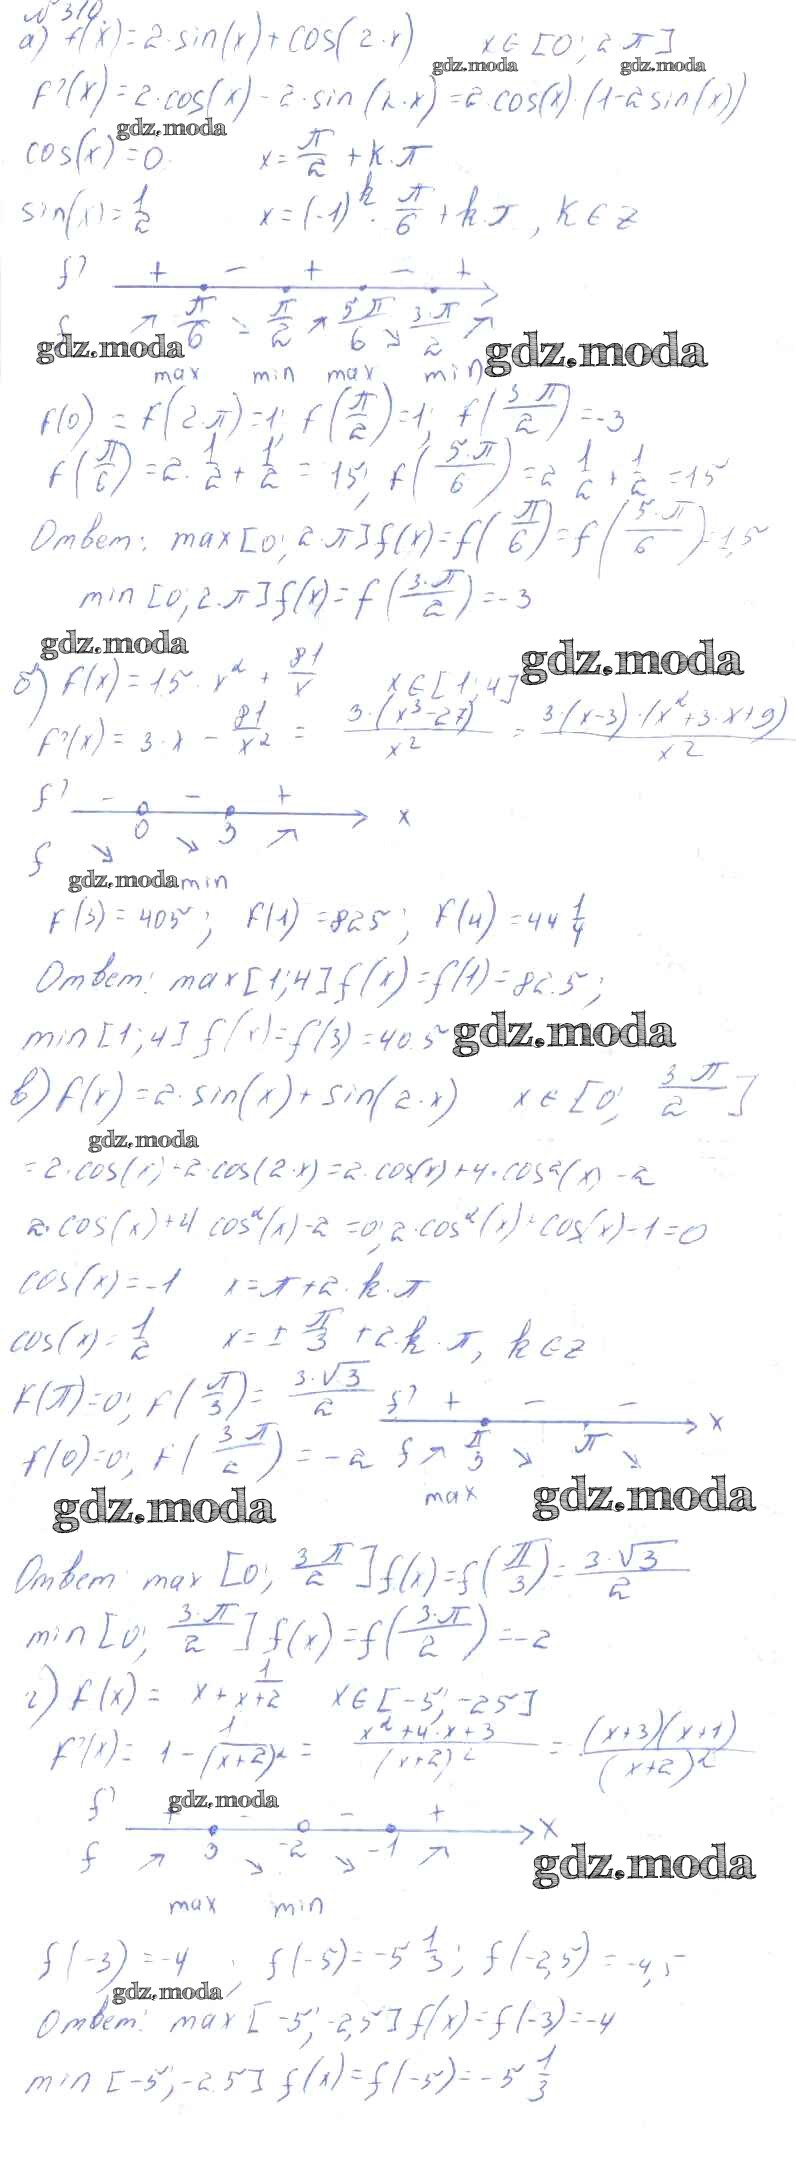 № 310
а) f(x)=2·sin(x)+cos(2·x) x∈[0; 2π]
gdz.moda gdz.moda
f'(x)=2·cos(x)-2·sin(2·x)=2·cos(x)·(1-2sin(x))
gdz.moda
cos(x)=0 x=π/2+k·π
sin(x)=1/2 x=(-1)^k·π/6+k·π, k∈z
f' + - + - +
f ↗ π/6 ↘ π/2 ↗ 5π/6 ↘ 3·π/2 ↗
gdz.moda gdz.moda
max min max min
f(0)=f(2·π)=1; f(π/2)=1; f(3π/2)=-3
f(π/6)=2·1/2+1/2=15; f(5·π/6)=2 1/2+1/2=15
Ответ: max[0; 2·π]f(x)=f(π/6)=f(5·π/6)=1,5
min[0; 2·π]f(x)=f(3·π/2)=-3
gdz.moda gdz.moda
б) f(x)=15·x²+81/x x∈[1;4]
f'(x)=3·x-81/x²=3·(x³-27)/x²=3·(x-3)·(x²+3·x+9)/x²
f' - - +
0 3 x
f ↘ ↘ ↗
gdz.moda min
f(3)=405; f(1)=825; f(4)=44 1/4
Ответ: max[1;4]f(x)=f(1)=82.5;
min[1;4]f(x)=f(3)=40.5 gdz.moda
в) f(x)=2·sin(x)+sin(2·x) x∈[0; 3π/2]
gdz.moda
=2·cos(x)-2·cos(2·x)=2·cos(x)+4·cos²(x)-2
2·cos(x)+4cos²(x)-2=0; 2·cos²(x)+cos(x)-1=0
cos(x)=-1 x=π+2·k·π
cos(x)=1/2 x=±π/3+2·k·π, k∈z
f(π)=0; f(π/3)=3·√3/2 f' + - - x
f(0)=0; f(3π/2)=-2 f ↗ π/3 ↘ π ↘
max
gdz.moda gdz.moda
Ответ: max[0; 3π/2]f(x)=f(π/3)=3·√3/2
min[0; 3·π/2]f(x)=f(3·π/2)=-2
г) f(x)=x+1/x+2 x∈[-5; -25]
f'(x)=1-1/(x+2)²=x²+4·x+3/(x+2)²=(x+3)(x+1)/(x+2)²
gdz.moda
f' + - - +
3 -2 -1 x
f ↗ ↘ ↘ ↗
gdz.moda
max min
f(-3)=-4; f(-5)=-5 1/3; f(-2,5)=-4,5
gdz.moda
Ответ: max[-5; -2,5]f(x)=f(-3)=-4
min[-5; -2.5]f(x)=f(-5)=-5 1/3